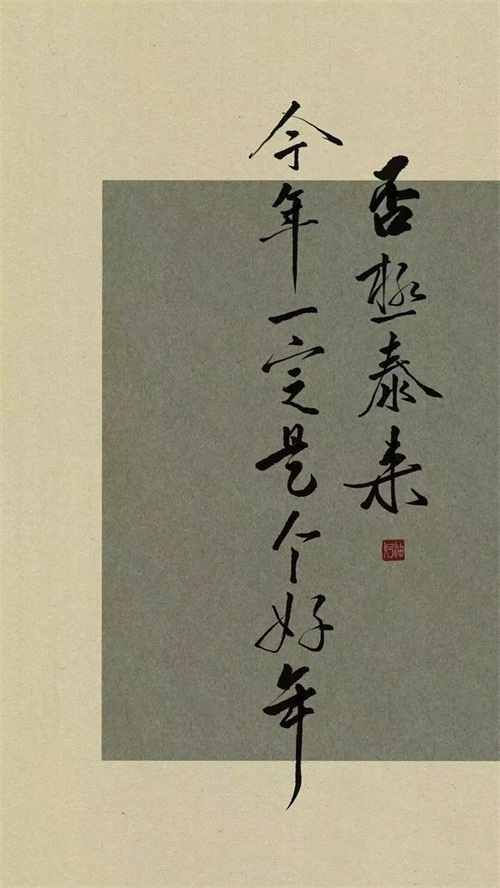 否极泰来
今年一定是个好年